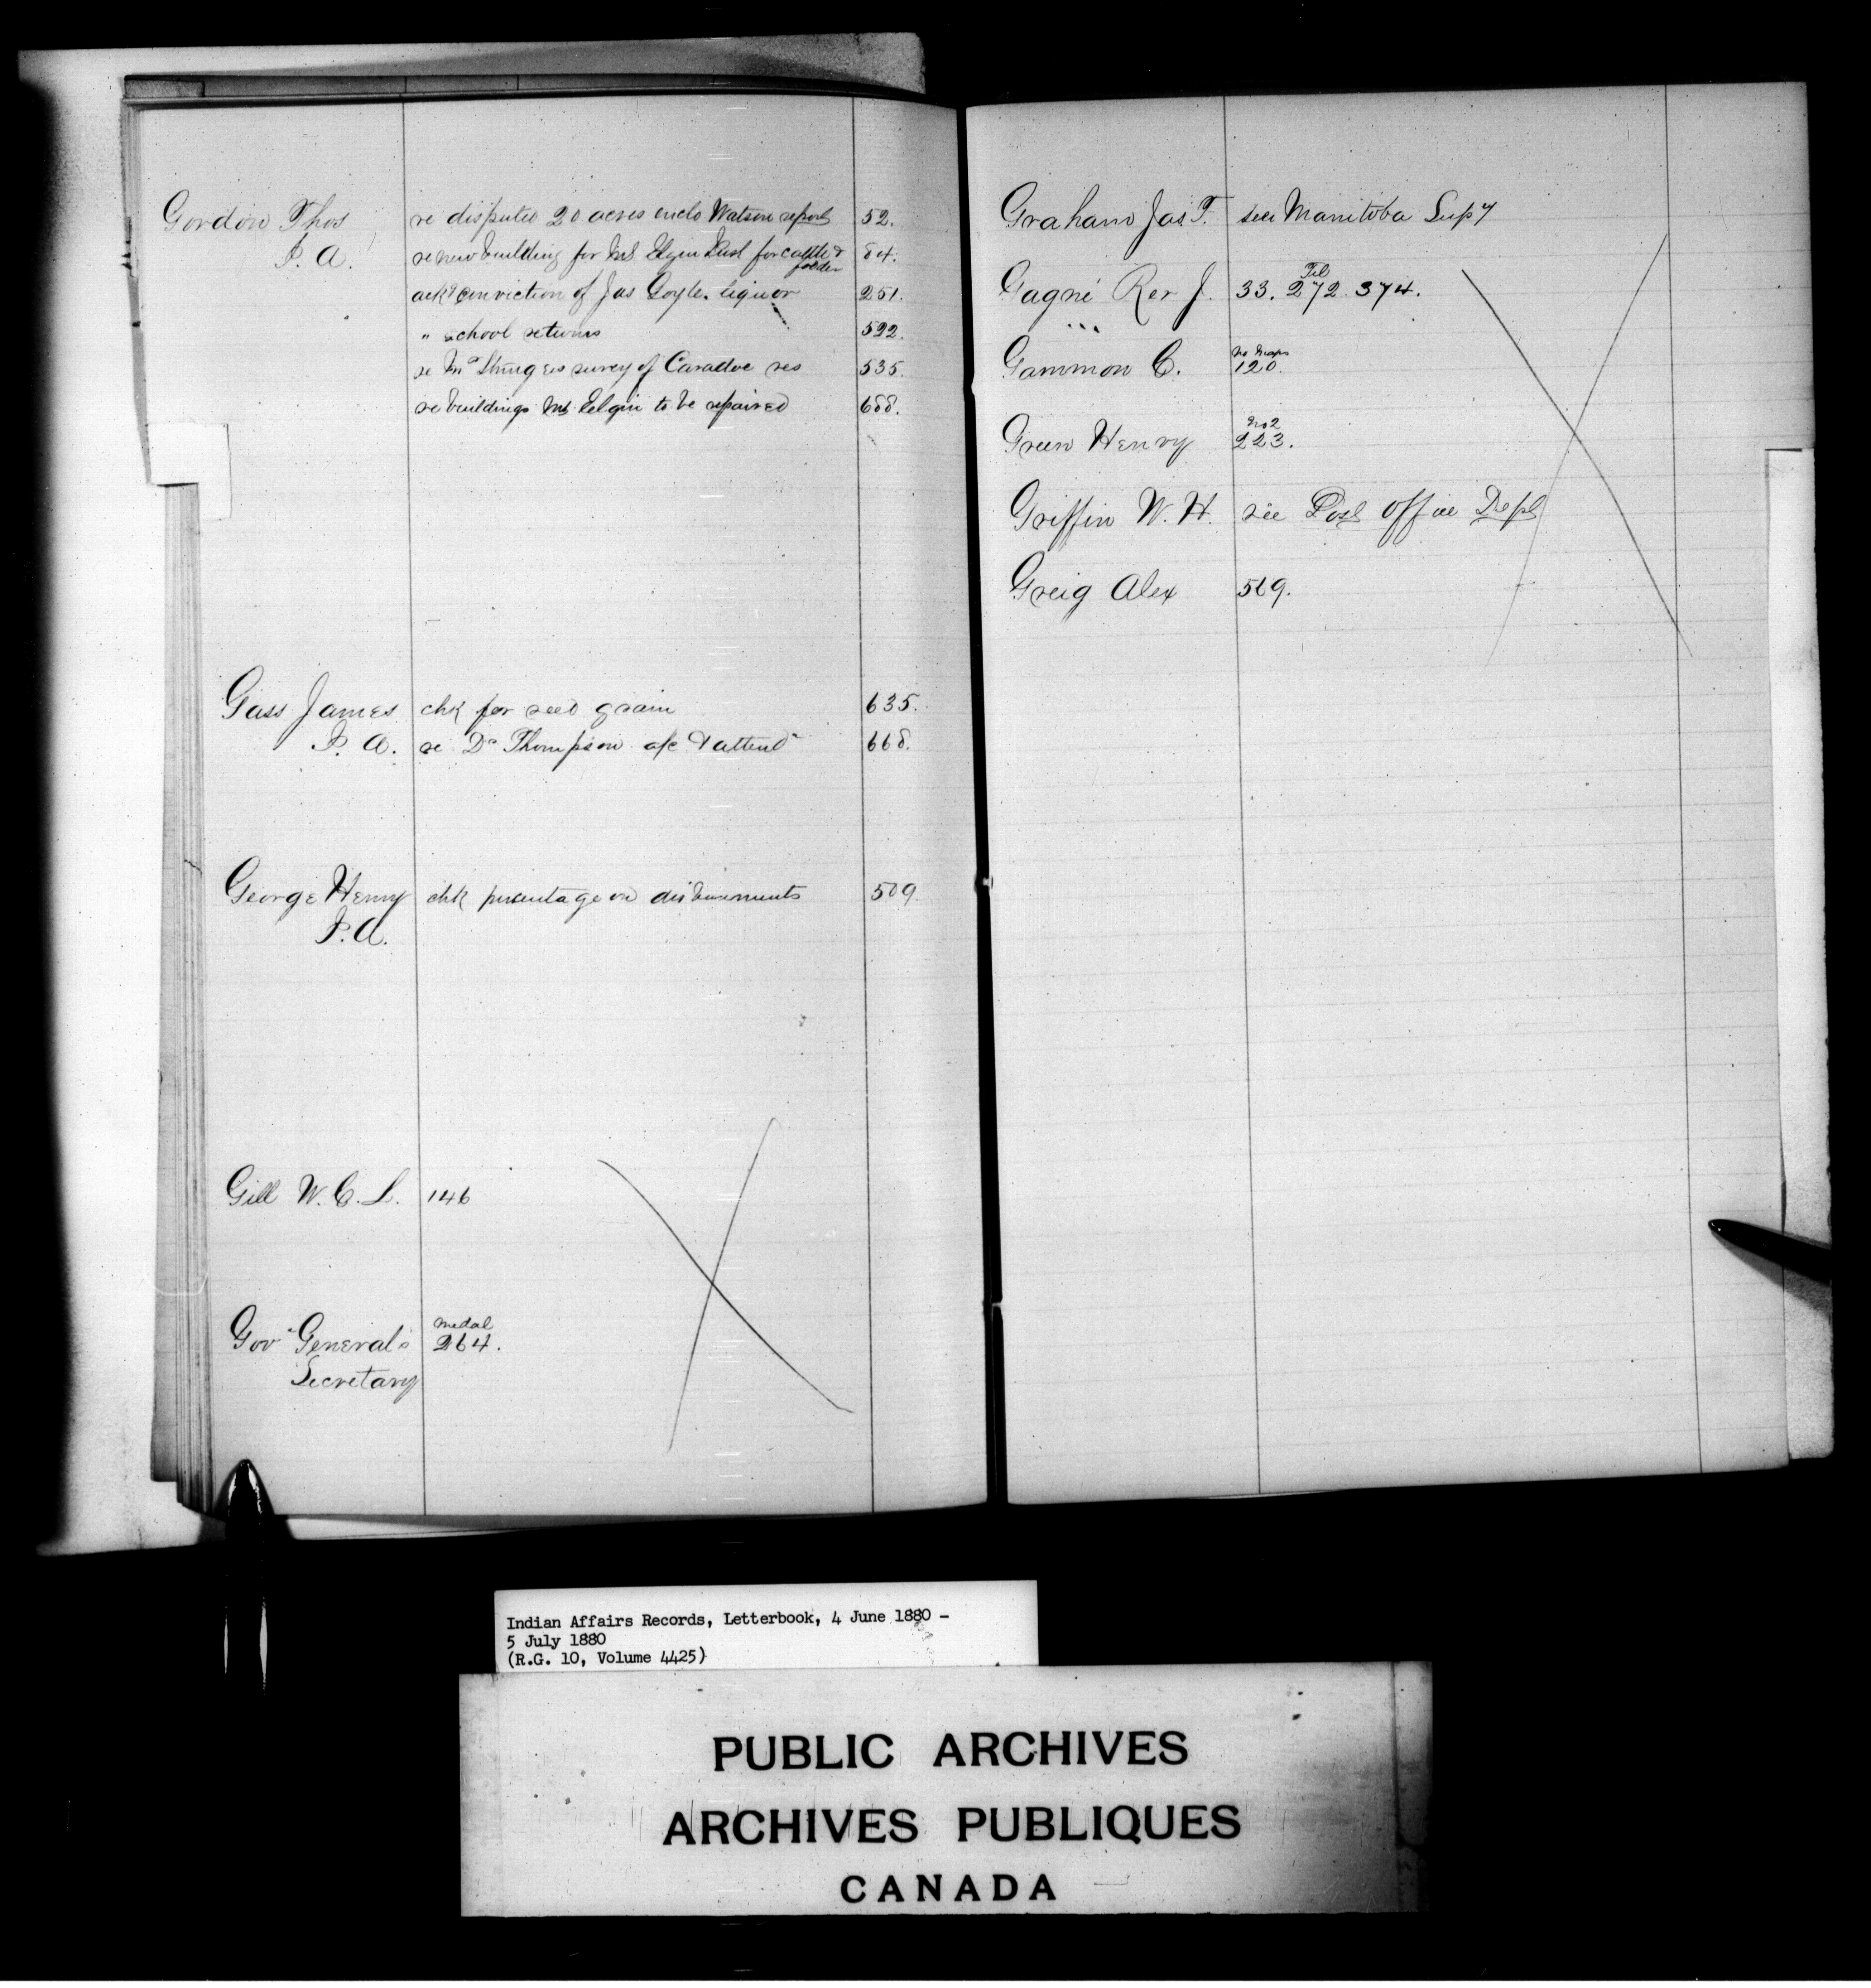 Gordon Thos re disputed 20 acres enclo Watson report 52.
I. A. re new building for Mt Elgin Inst for cattle & fodder 84.
ackg conviction of Jas Goyle. liquor 251.
" school returns 522.
re survey of Caradoc res 535.
re buildings Mt Elgin to be repaired 688.
Gass James chk for seed grain 635.
I. A. re Dr Thompson a/c & attend 668.
George Henry chk percentage on disbursements 509.
I. A.
Gill W. C. L. 146
medal
Gov General's 264.
Secretary
Graham Jas. F. see Manitoba Supy
Tel
Gagné Rev J. 33. 272. 374.
no maps
Gammon C. 120.
no 2
Green Henry 223.
Griffin W. H. see Post Office Dept
Greig Alex 569.
Indian Affairs Records, Letterbook, 4 June 1880 -
5 July 1880
(R.G. 10, Volume 4425)
PUBLIC ARCHIVES
ARCHIVES PUBLIQUES
CANADA